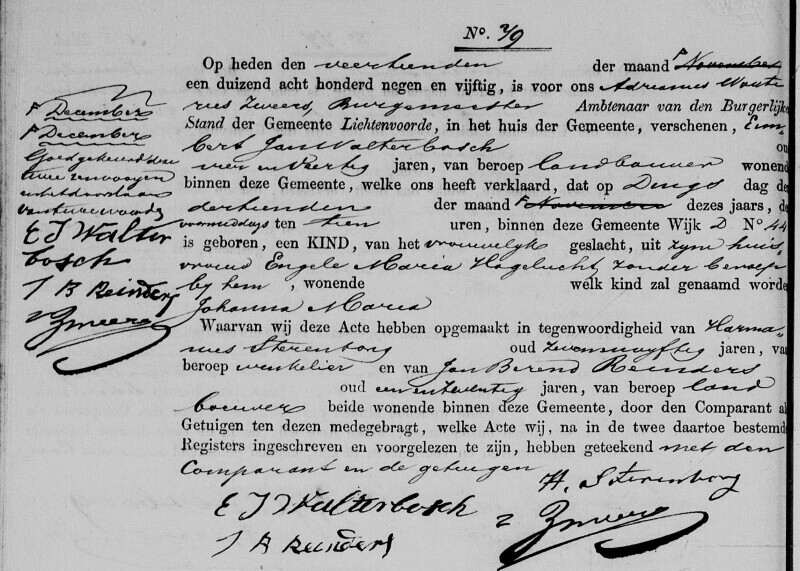 No. 79
Op heden den veertienden der maand November
een duizend acht honderd negen en vijftig, is voor ons Adrianus Woute
rus Zweers, Burgemeester Ambtenaar van den Burgerlijke
Stand der Gemeente Lichtenvoorde, in het huis der Gemeente, verschenen, Eim
bert Jan Walterbosch ou
vier en Veertig jaren, van beroep landbouwer wonend
binnen deze Gemeente, welke ons heeft verklaard, dat op Dings dag de
dertienden der maand November dezes jaars, de
voormiddags ten tien uren, binnen deze Gemeente Wijk D No 44
is geboren, een KIND, van het vrouwelyk geslacht, uit zyn huis
vrouw Engele Maria Hogelucht, zonder beroep
by hem, wonende welk kind zal genaamd worde
Johanna Maria
Waarvan wij deze Acte hebben opgemaakt in tegenwoordigheid van Harma
nus Sterenborg oud zevenenvyftig jaren, va
beroep winkelier en van Jan Berend Reinders
oud eenentzeventig jaren, van beroep land
bouwer beide wonende binnen deze Gemeente, door den Comparant al
Getuigen ten dezen medegebragt, welke Acte wij, na in de twee daartoe bestemd
Registers ingeschreven en voorgelezen te zijn, hebben geteekend met den
Comparant en de getuigen
E J Walterbosch
H. Sterenborg
J B Reinders
Zweers
December
December
Goedgekeurd deze
twee renvooyen
en het doorslaan
van twee woorden
E J Walter
bosch
J B Reinders
Zweers